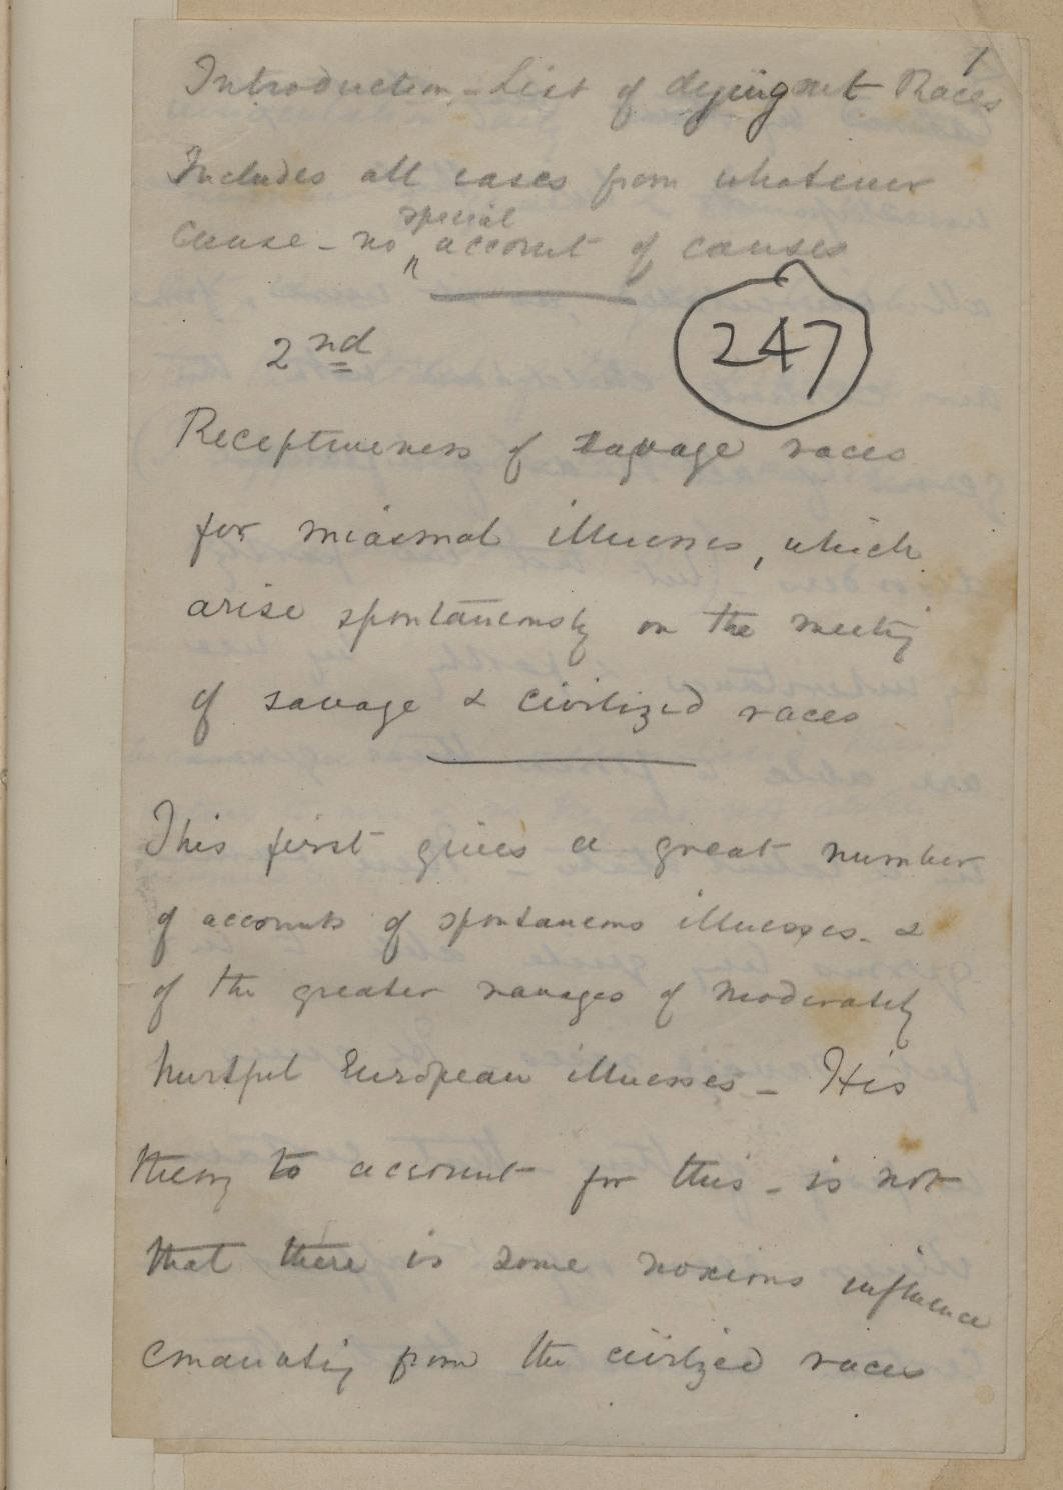 1
Introduction – List of dying out Races
Includes all cases from whatever
special
Cause – no ^ account of causes
247
2nd
Receptiveness of savage races
for miasmal illnesses, which
arise spontaneously on the meeting
of savage & civilized races
This first gives a great number
of accounts of spontaneous illnesses – &
of the greater ravages of moderately
hurtful European illnesses – His
theory to account for this – is not
that there is some noxious influence
emanating from the civilized races